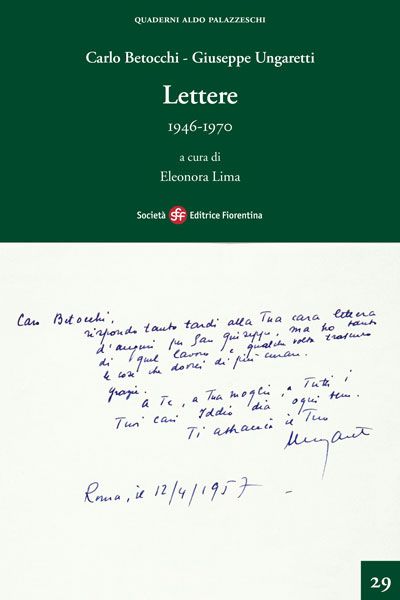 QUADERNI ALDO PALAZZESCHI
Carlo Betocchi - Giuseppe Ungaretti
Lettere
1946-1970
a cura di
Eleonora Lima
Società sef Editrice Fiorentina
Caro Betocchi,
rispondo tanto tardi alla Tua cara lettera
d'auguri per San Giuseppe, ma ho tanto
di quel lavoro e qualche volta trascuro
le cose che dovrei di più curare.
Grazie.
A Te, a Tua moglie, a Tutti i
Tuoi cari Iddio dia ogni bene.
Ti abbraccia il Tuo
Ungaretti
Roma, il 12/4/1957
29